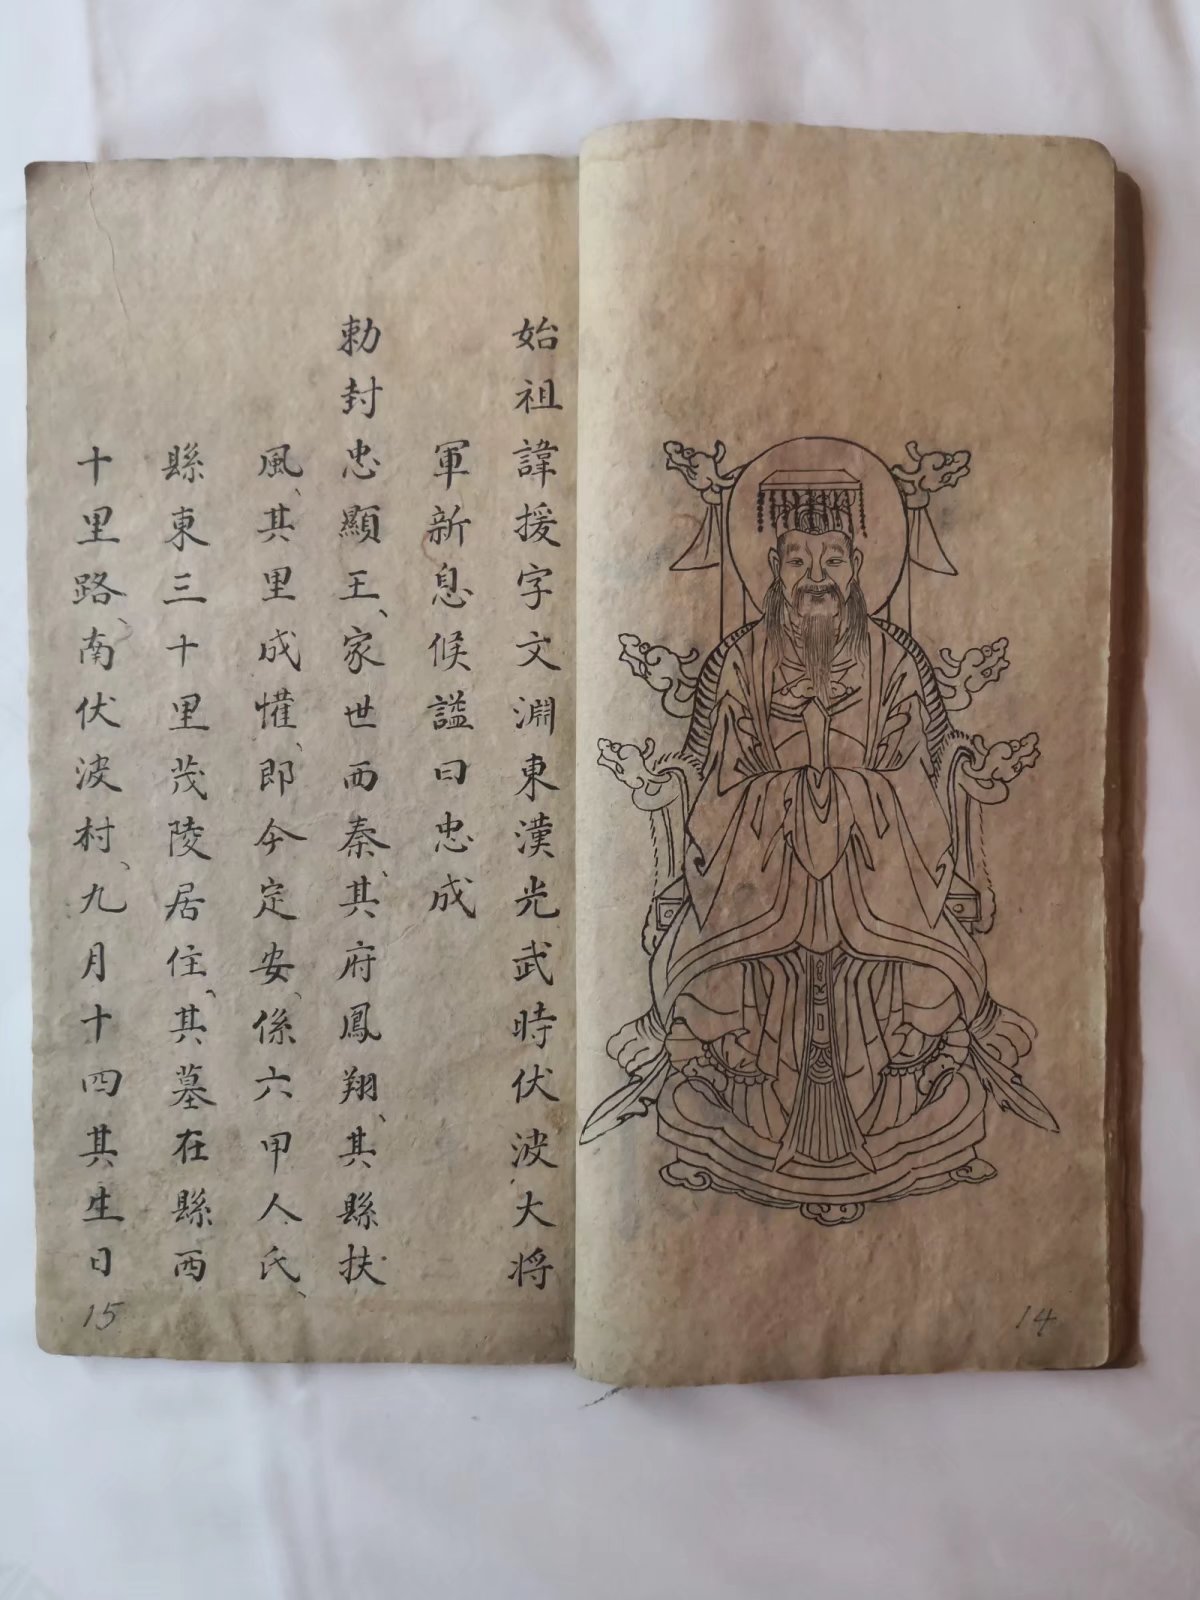 14
始祖諱援字文淵東漢光武時伏波大將
軍新息候謚曰忠成
勅封忠顯王、家世西秦、其府鳳翔、其縣扶
風、其里成懽、即今定安、係六甲人氏、
縣東三十里茂陵居住、其墓在縣西
十里路、南伏波村、九月十四其生日
15